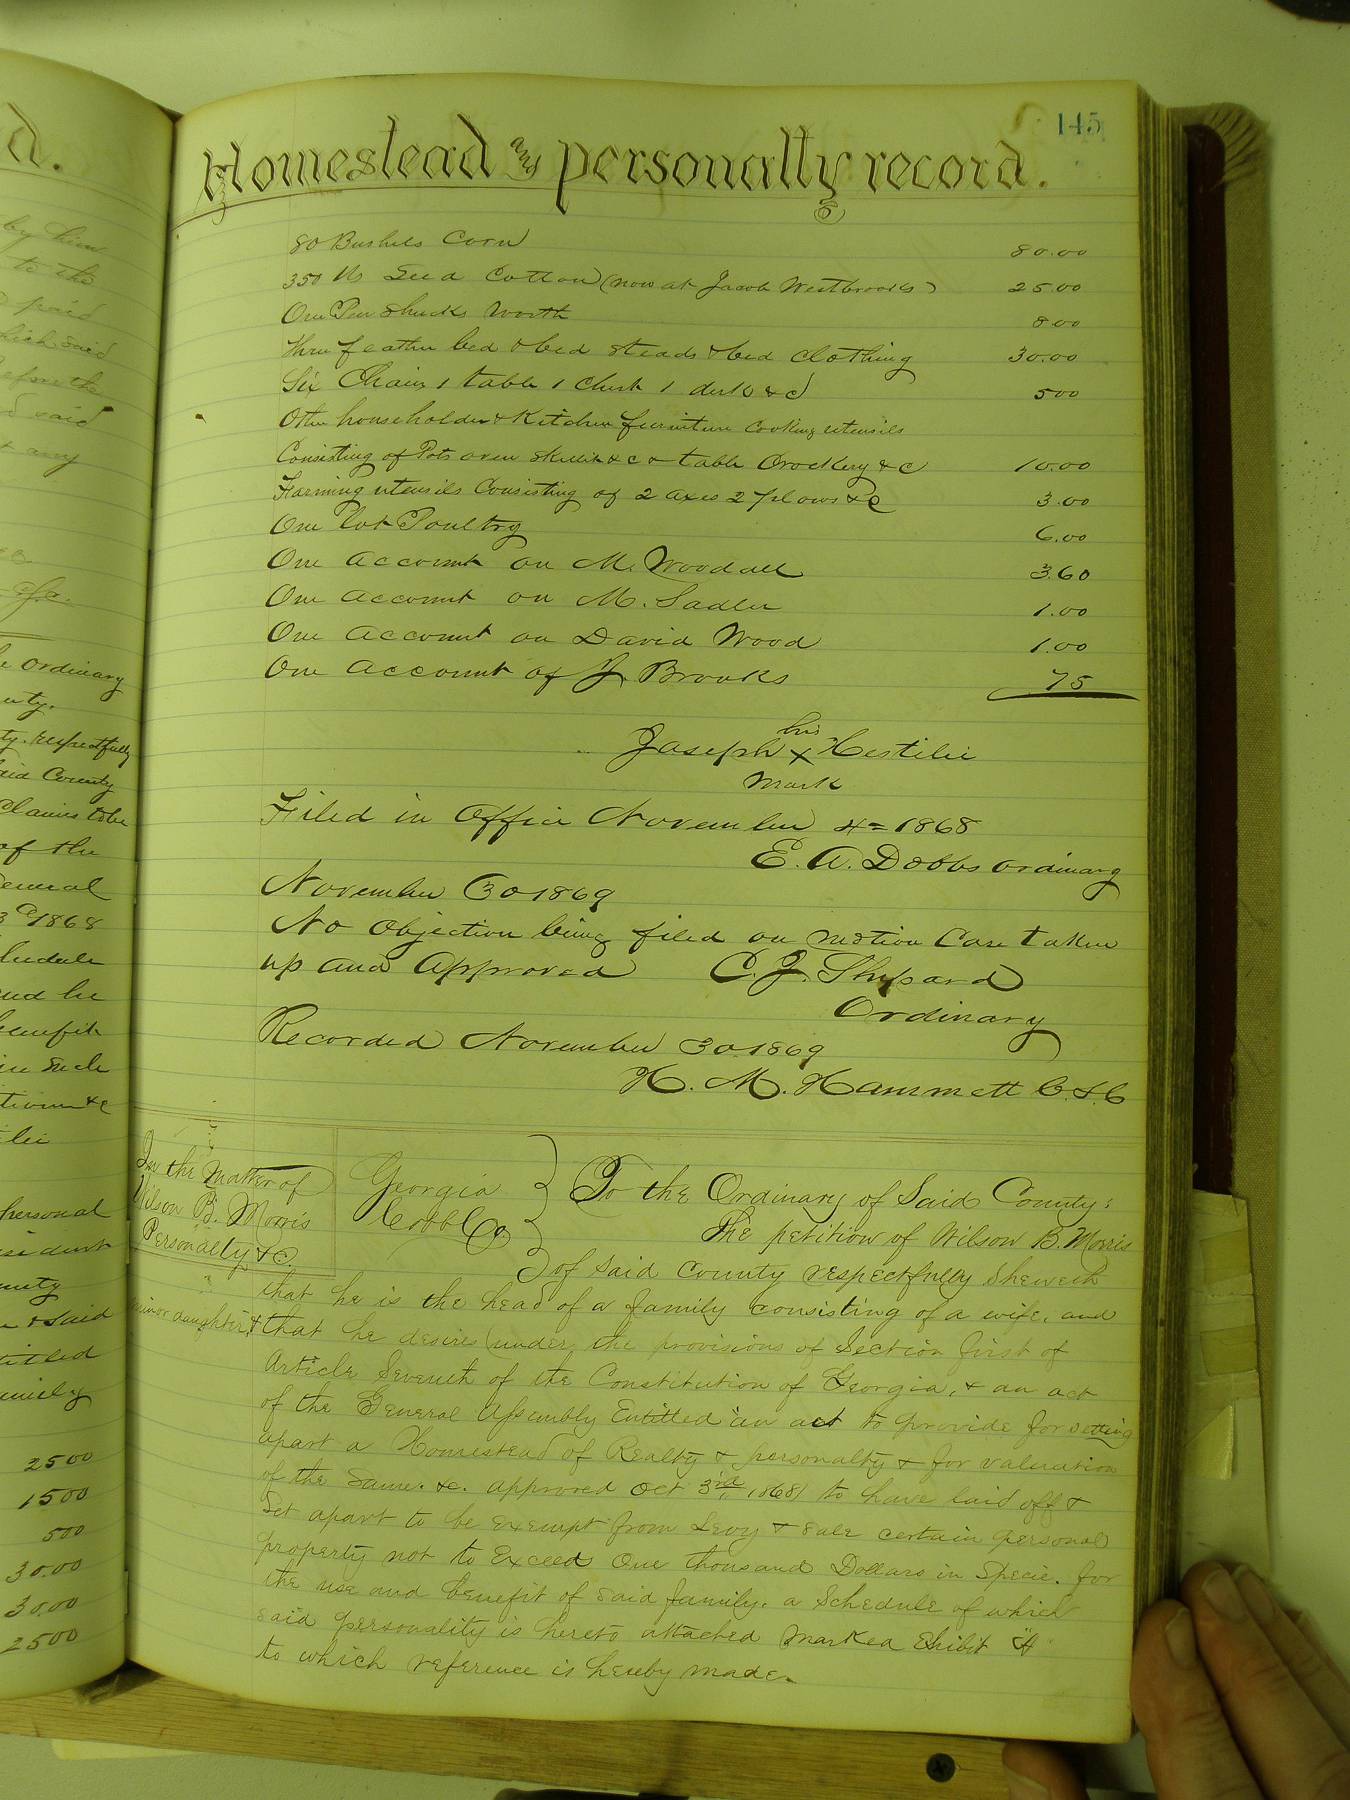 145
Homestead and personalty record.
80 Bushels Corn 80.00
350 lbs Seed Cotton (now at Jacob Westbrooks) 25.00
One Pen Shucks Worth 8.00
Three feather bed & bed steads & bed clothing 30.00
Six Chairs 1 table 1 Chest 1 desk &c 500
Other household & Kitchen furniture Cooking utensils
Consisting of Pots oven Skillet &c & table Crockery &c 10.00
Farming utensils Consisting of 2 axes 2 plows &c 3.00
One lot Poultry 6.00
One Account on M. Woodall 3.60
One Account on M. Sadler 1.00
One Account on David Wood 1.00
One Account of J. Brooks 75
his
Joseph X Hestilie
Mark
Filed in Office November 4= 1868
E. A. Dobbs Ordinary
November 30 1869
No Objection being filed on motion Case taken
up and Approved C. J. Shepard
Ordinary
Recorded November 30 1869
H. M. Hammett C.S.C
In the Matter of
Wilson B. Morris
Personalty &c.
Georgia
Cobb Co
To the Ordinary of Said County:
The petition of Wilson B. Morris
of said County respectfully Sheweth
that he is the head of a family consisting of a wife, and
minor daughter & that he desires (under the provisions of Section first of
Article Seventh of the Constitution of Georgia, & an act
of the General Assembly Entitled an act to provide for setting
apart a Homestead of Realty & personalty & for valuation
of the Same. &c. approved Oct 3rd, 1868) to have laid off &
Set apart to be Exempt from Levy & sale certain personal
property not to Exceed One thousand Dollars in Specie. for
the use and benefit of said family. a Schedule of which
said personality is hereto attached marked Exhibit "A"
to which reference is hereby made.
d.
by him
to the
paid
which said
before the
said
any
Ordinary
respectfully
said County
Claims to be
of the
General
3d 1868
and he
benefit
in such
personal
& said
2500
1500
500
30.00
30.00
2500